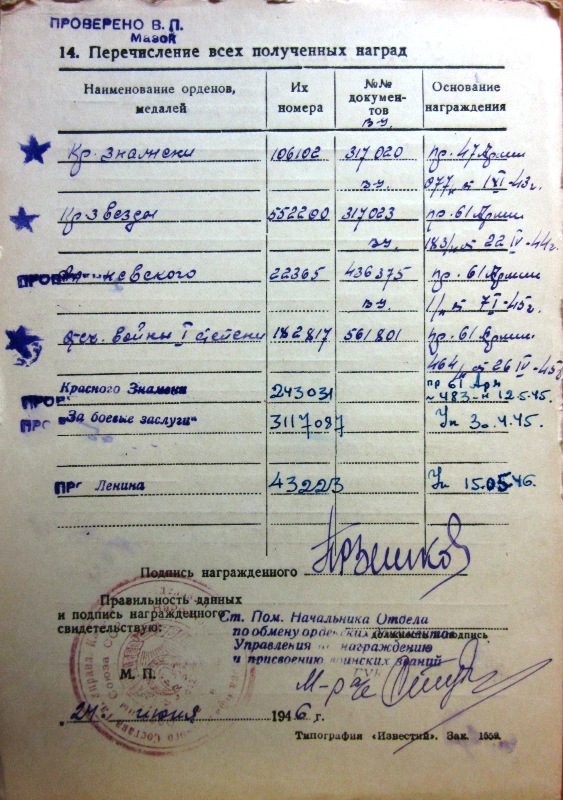 ПРОВЕРЕНО В. П.
Мазой
14. Перечисление всех полученных наград
Наименование орденов, медалей
Их номера
№№ документов
ву.
Основание награждения
Кр. знамени 106102 317020 пр. 47 Армии
ву. 077/н от 1 XI-43г.
Кр Звезды 552200 317023 пр. 61 Армии
ву. 183/н от 22 IV-44г.
невского 22365 436375 пр. 61 Армии
ву. 1/н от 7 I-45г.
Отеч. войны I степени 182817 561801 пр. 61 Армии
464/н от 26 IV-45г
Красного Знамени 243031 пр 61 Арм
483-н 12.5.45.
"За боевые заслуги" 3117087 Ук 3. 4.45.
Ленина 43223 Ук 15.05.46.
Подпись награжденного
Правильность данных
и подпись награжденного
свидетельствую:
Ст. Пом. Начальника Отдела
по обмену орденских документов
подпись
Управления по награждению
и присвоению воинских званий
М. П.
М-р а/с
24 июня 1946 г.
Типография «Известий». Зак. 1559.